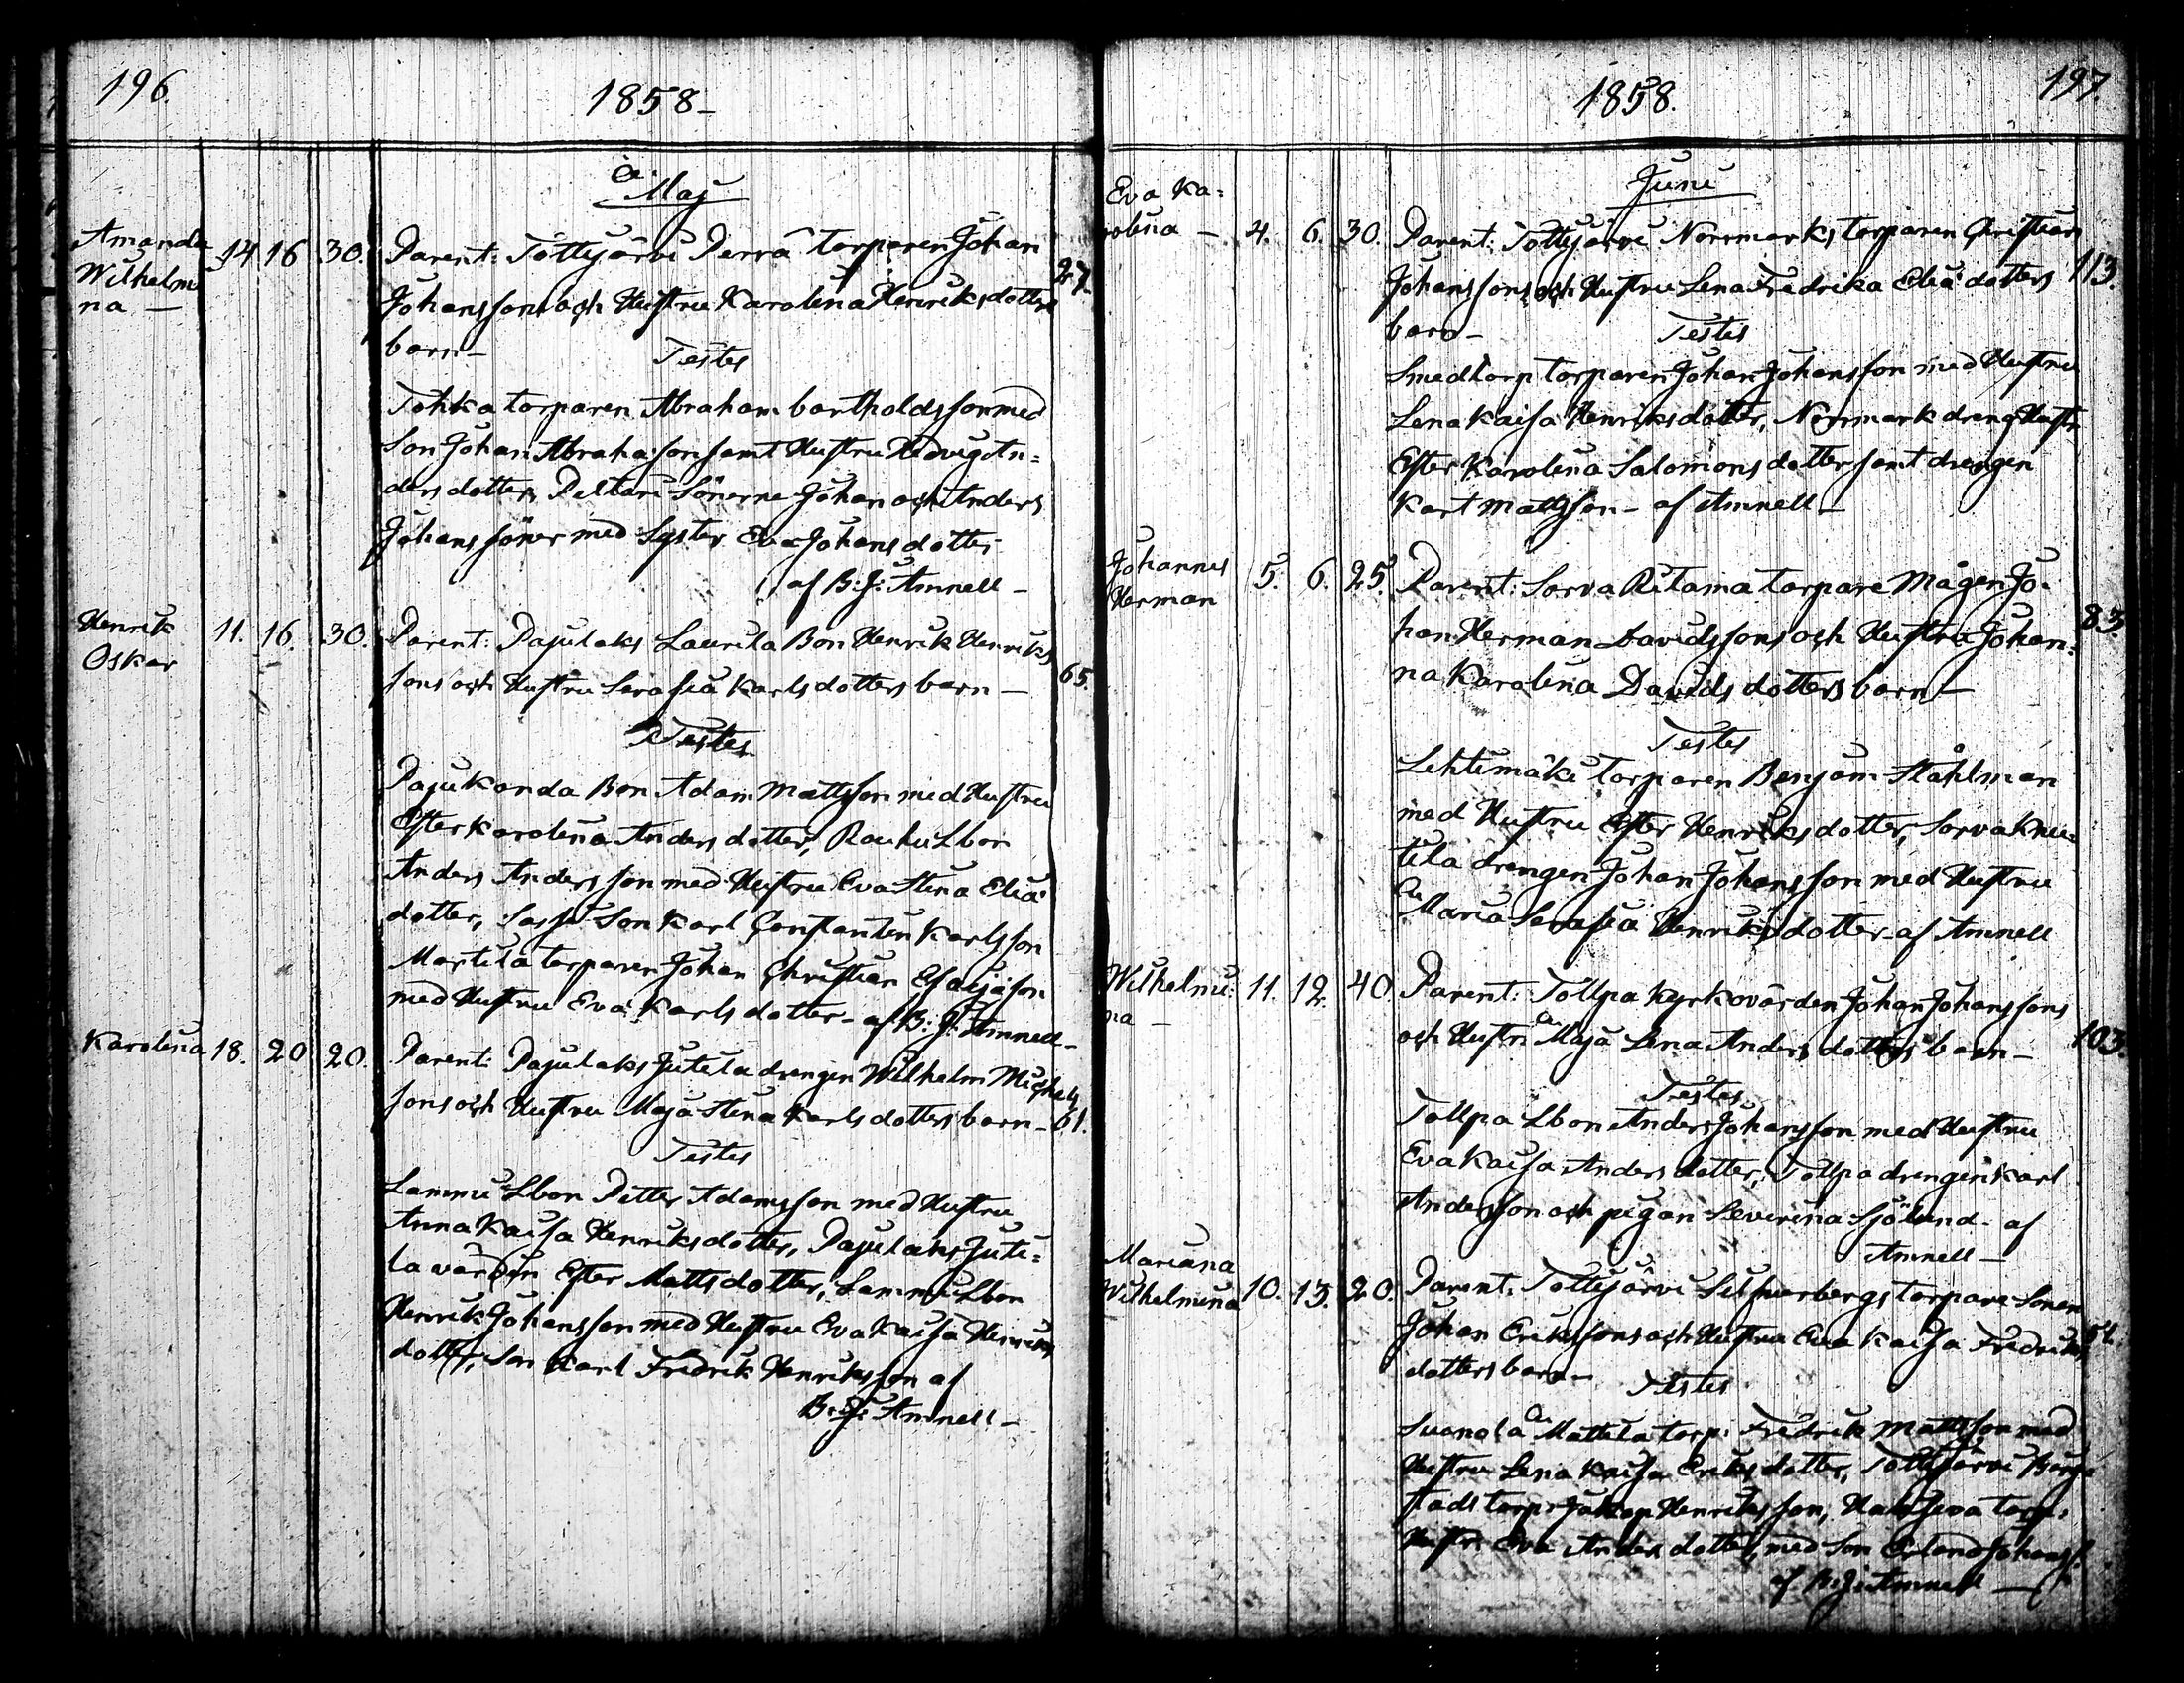 196.
1858-
Maj
Amanda
Wilhelmi
na —
14 16 30.
Parent: Tottijärvi Perrä torparen Johan
Johanssons och Hustru Karolina Henriksdotters
27.
barn-
Testes
Tohka torparen Abraham bartholdsson med
Son Johan Abrahasson samt Hustru Hedvig An=
dersdotter, Peltari Sönerne Johan och Anders
Johanssöner med Syster Eva Johansdotter
af B: J: Amnell -
Henrik
Oskar
11. 16. 30.
Parent: Pajulaks Laurila Bon Henrik Henriks
sons och Hustru Serafia Karlsdotters barn —
65.
Testes
Pajukanda Bon Adam Mattsson med Hustru
Ester Karolina Andersdotter, Rauhu Lbon
Anders Andersson med Hustru Eva Stina Eliä
dotter, Sassi Son Karl Constantin Karlsson
Martila torparen Johan Christian Esaijäson
med Hustru Eva Karlsdotter- af B: J: Amnell-
Karolina
18. 20 20.
Parent: Pajulaks Jutila drengen Wilhelm Michels
sons och Hustru Maja Stina Karlsdotters barn - 61.
Testes
Lammi Lbon Petter Adamsson med Hustru
Anna Kaisa Henriksdotter, Pajulaks Juti=
la värdin Ester Mattsdotter, Lammi Lbon
Henrik Johansson med Hustru Eva Kaisa Henriks
dotter, Son Karl Fredrik Henriksson af
B: J: Amnell -
197.
1858.
Juni
Eva Ka=
rolina —
4. 6. 30.
Parent: Tottijärvi Norrmarks torparen Christian
Johanssons och Hustru Lena Fredrika Eliä dotters
113.
barn-
Testes
Smedtorp torparen Johan Johansson med Hustru
Lena Kaisa Henriksdotter, Norrmark dreng Hustr
Ester Karolina Salomonsdotter samt drengen
Karl Mattsson - af Amnell -
Johannes
Herman
5. 6. 25.
Parent: Sorva Ritama torpare Mågen Jo-
han Herman Davidssons och Hustru Johan=
83.
na Karolina Davidsdotters barn -
Testes
Lehtimäki Torparen Benjam Stålman
med Hustru Ester Henriksdotter, Sorva Knu=
tila drengen Johan Johansson med Hustru
Maria Serafia Henriksdotter- af Amnell
Wilhelmi:
na —
11. 12. 40
Parent: Tollpa Kyrkovärden Johan Johanssons
och Hustru Maja Lena Anders dotters barn -
103.
Testes
Tollpa Lbon Anders Johansson med Hustru
Eva Kaisa Andersdotter, Tollpa drengen Karl
Andersson och pigan Severina Sjölund - af
Amnell —
Mariana
Wilhelmina
10. 13. 20.
Parent: Tottijärvi Silfverbergs torpare Sonen
Johan Erikssons och Hustru Eva Kaisa Fredriks
54.
dotters barn -
Testes
Mattila torp: Fredrik Mattsson med
Hustru Lena Kaisa Eriksdotter, Tottijärvi Berg
stads torp: Jakop Henriksson, torp:
Hustru Eva Andersdotter, med Son Erland Johanss.
af B: J: Amnell —